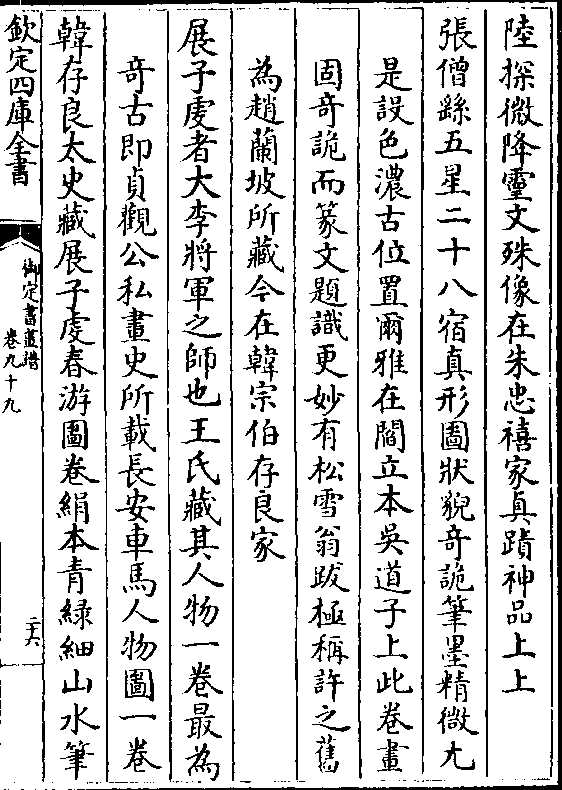 陸探微降靈文殊像在朱忠禧家真蹟神品上上
張僧繇五星二十八宿真形圖狀貌奇詭筆墨精微尤
是設色濃古位置爾雅在閻立本吳道子上此卷畫
固奇詭而篆文題識更妙有松雪翁跋極稱許之舊
為趙蘭坡所藏今在韓宗伯存良家
展子虔者大李將軍之師也王氏藏其人物一卷最為
奇古即貞觀公私畫史所載長安車馬人物圖一卷
韓存良太史藏展子虔春游圖卷絹本青綠細山水筆
欽定四庫全書
御定書畫譜
卷九十九
二十六